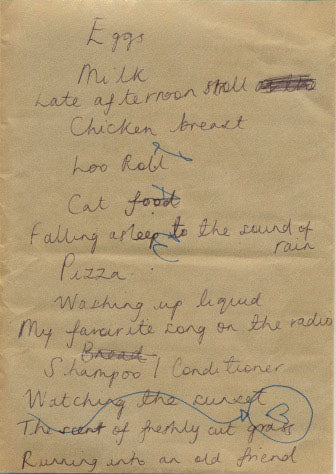 Eggs
Milk
Late afternoon stroll
Chicken breast
Loo Roll
Cat food
Falling asleep to the sound of
rain
Pizza
Washing up liquid
My favourite song on the radio
Bread
Shampoo / Conditioner
Watching the sunset
The scent of freshly cut grass
Running into an old friend